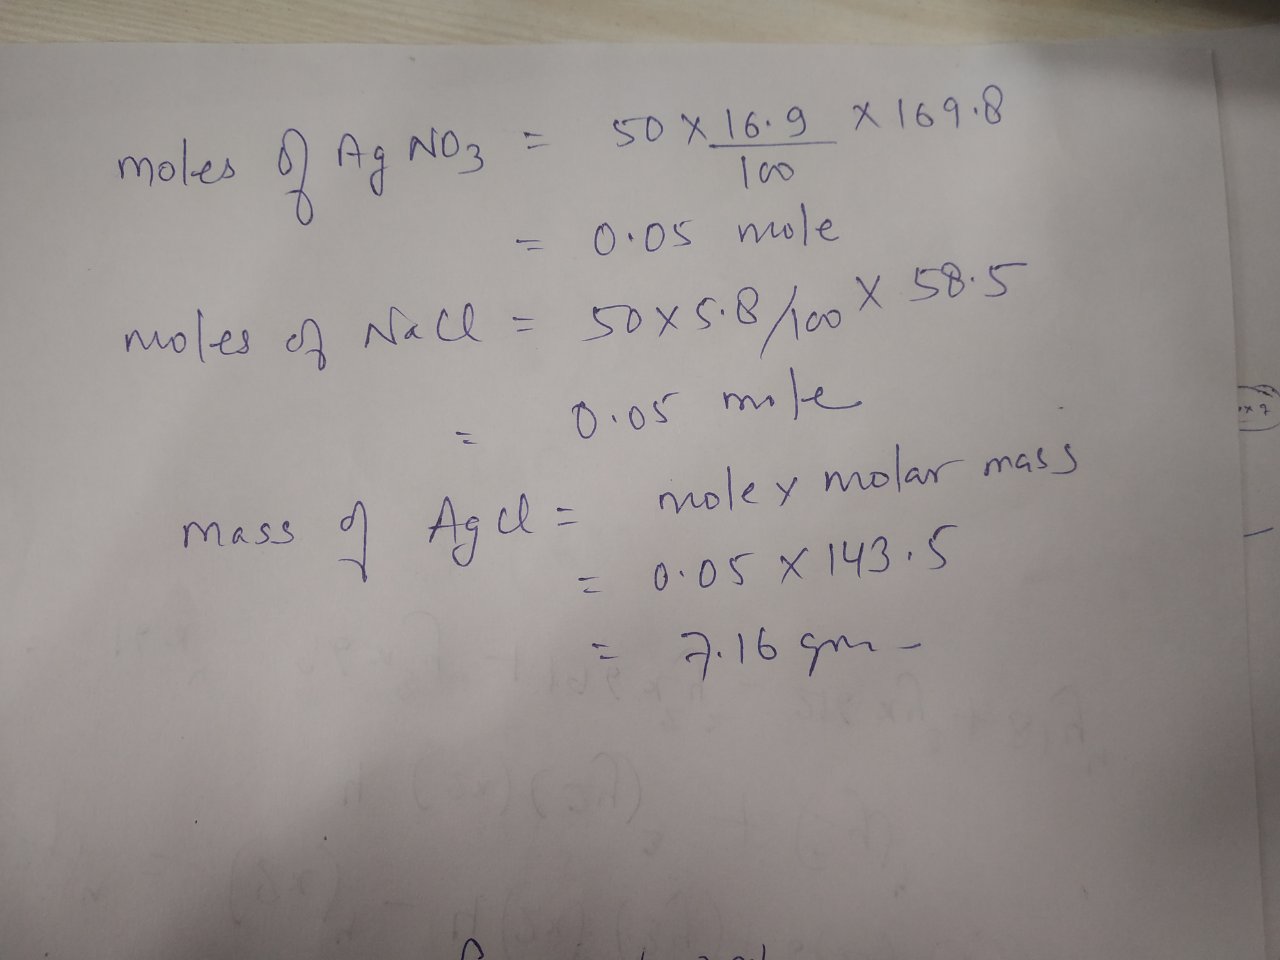 moles of AgNO3 = 50 x 16.9/100 x 169.8
= 0.05 mole
moles of NaCl = 50 x 5.8/100 x 58.5
= 0.05 mole
mass of AgCl = mole x molar mass
= 0.05 x 143.5
= 7.16 gm -